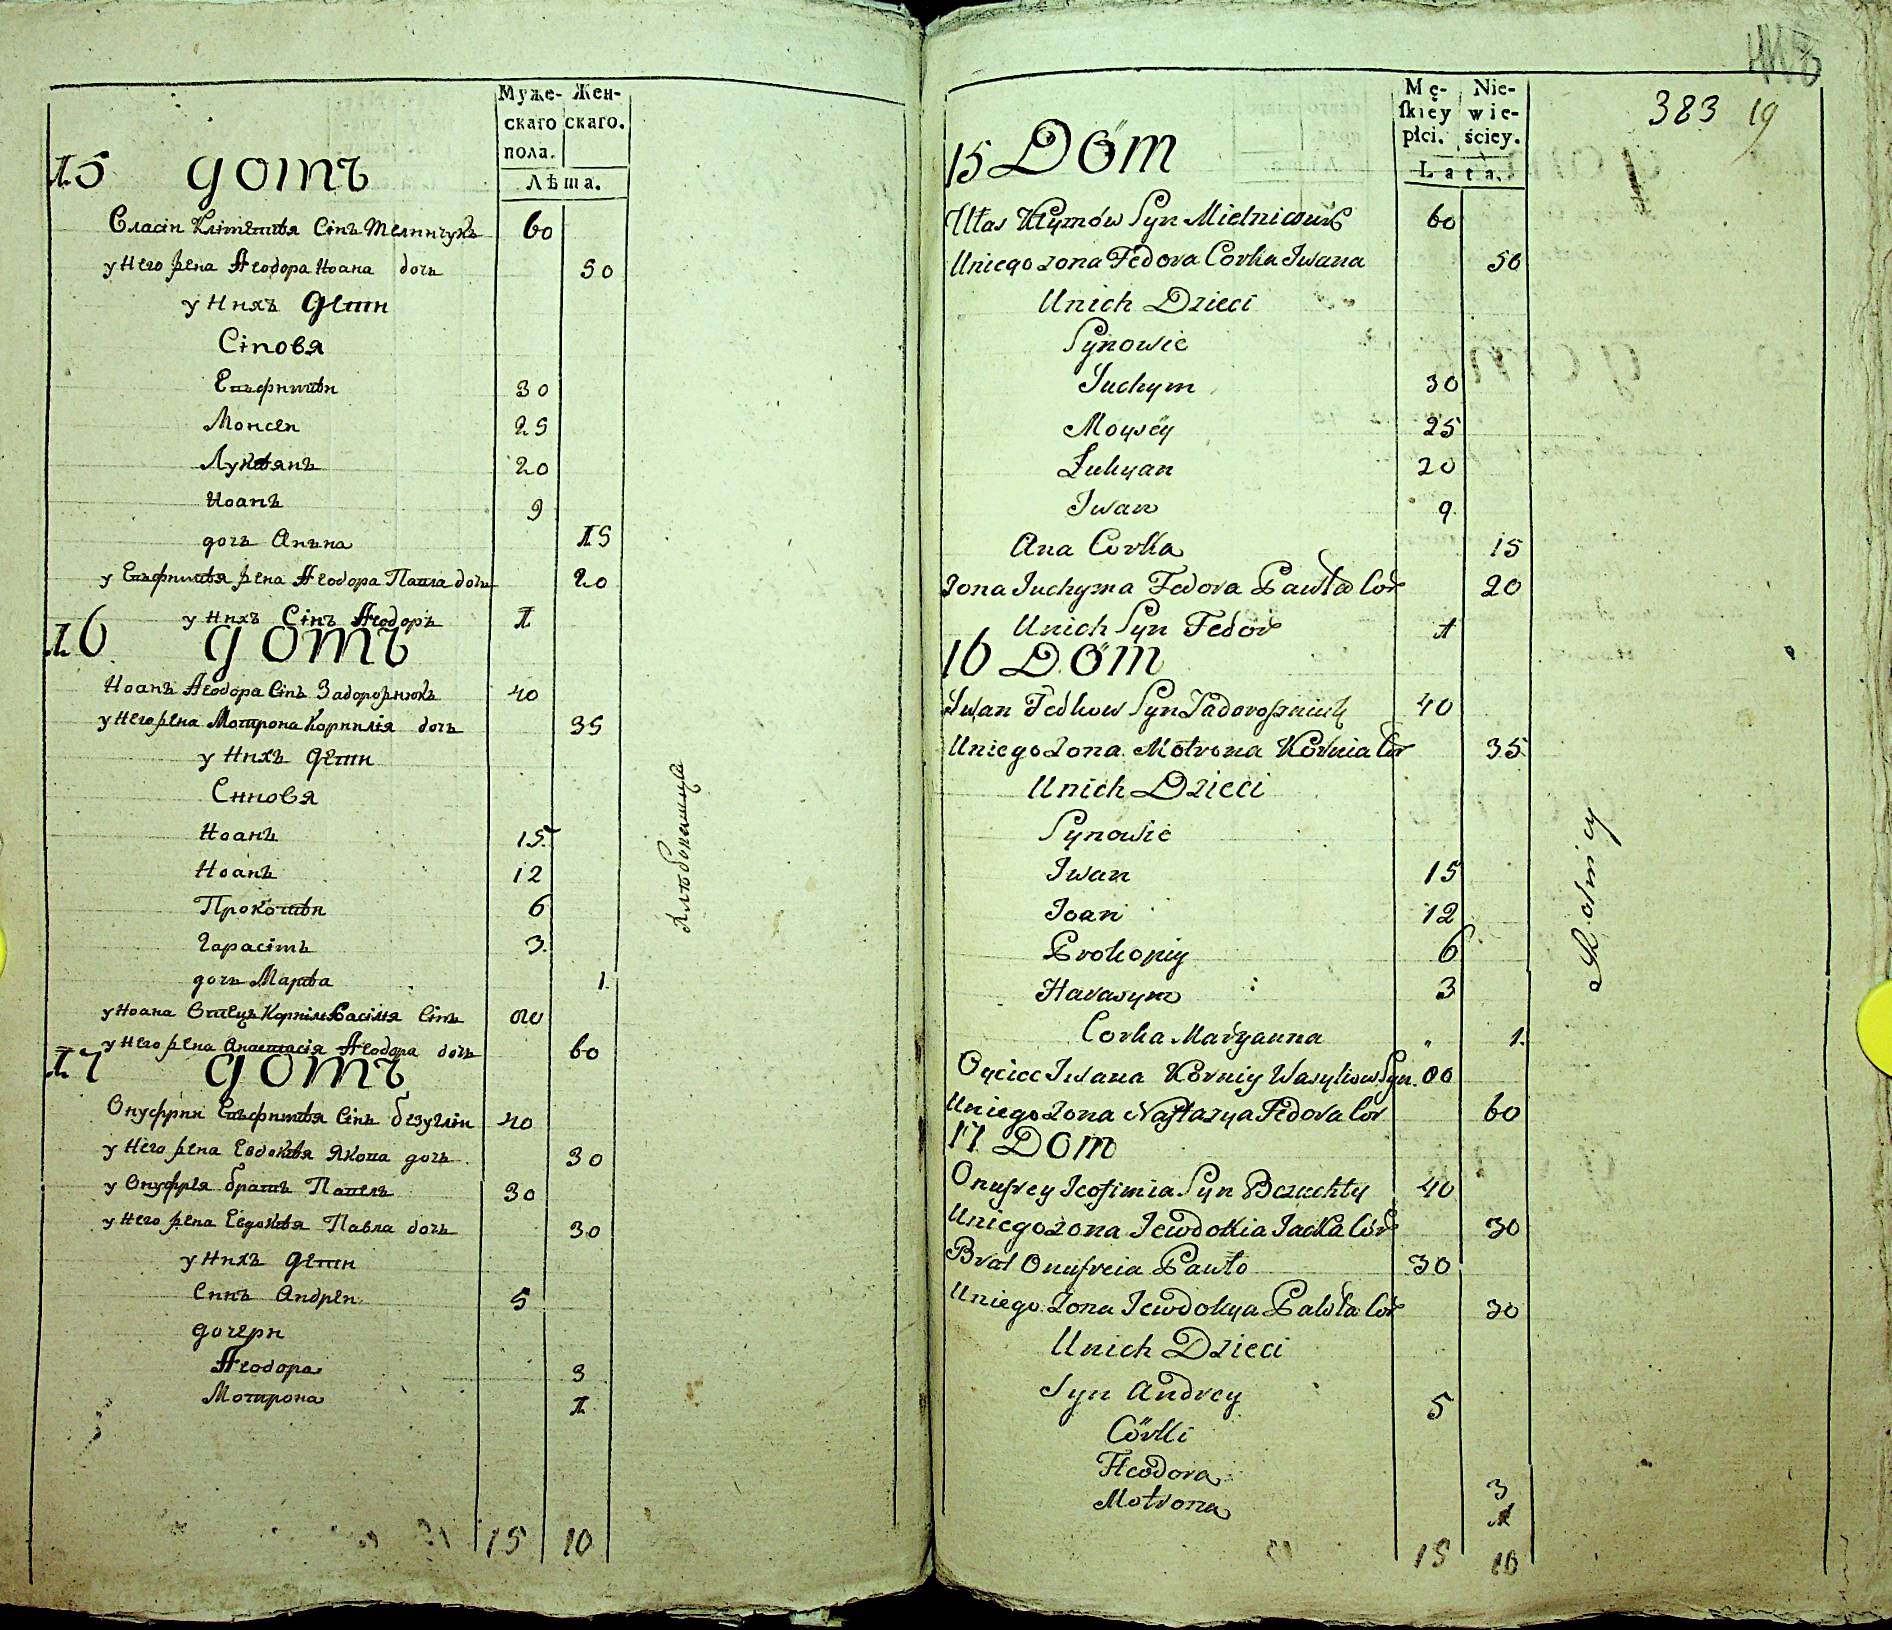 Муже- Жен-
скаго скаго.
пола.
Лѣта.
15 домъ
Власіи Клімѣтія Сінъ Мелничукъ 60
у Него жена Ѳеодора Иоана дочь 50
у Нихъ Дѣти
Сіновя
Евфимій 30
Моисеи 25
Лукіянъ 20
Иоанъ 9
дочь Анъна 15
у Евфимія жена Ѳеодора Павла дочь 20
у Нихъ Сінъ Ѳеодоръ 1
16 домъ
Иоанъ Ѳеодора Сінъ Задорожнюкъ 40
у Него жена Мотрона Корнилія дочь 35
у Нихъ Дѣти
Синовя
Иоанъ 15
Иоанъ 12
Прокопіи 6
Гарасімъ 3
дочь Марія 1
у Иоана Отецъ Корніли Васілія Сінъ
у Него жена Анастасія Ѳеодора дочь 60
17 домъ
Онуфріи Евфимія Сінъ безуглій 40
у Него жена Евдокія Якова дочь 30
у Онуфрія братъ Павелъ 30
у Него жена Евдокія Павла дочь 30
у Нихъ Дѣти
Синъ Андреи 5
дочери
Ѳеодора 3
Мотрона 1
15 10
Хлѣбопашцы
Mę- Nie-
skiey wie-
płci. ściey.
Lata.
383 19
15 Dom
Ułas Kłymów Syn Mielniczuk 60
Uniego zona Fedora Corka Iwana 50
Unich Dzieci
Synowie
Juchym 30
Moysey 25
Łukyan 20
Iwan 9
Ana Corka 15
Zona Juchyma Fedora Pawła Cor 20
Unich Syn Fedor 1
16 Dom
Iwan Fedkow Syn Zadorożniuk 40
Uniego Zona Motrona Kornia Cor 35
Unich Dzieci
Synowie
Iwan 15
Ioan 12
Prokopiy 6
Harasym 3
Corka Maryanna 1
Oyciec Iwana Korniy Wasyliow Syn
Uniego Zona Nastazya Fedora Cor 60
17 Dom
Onufrey Jeofimia Syn Bezuchły 40
Uniego zona Jewdokia Jacka Cór 30
Brat Onufreia Pawło 30
Uniego Zona Jewdokya Pawła Cór 30
Unich Dzieci
Syn Andrey 5
Córki
Fteodora 3
Motrona 1
15 10
Rolnicy